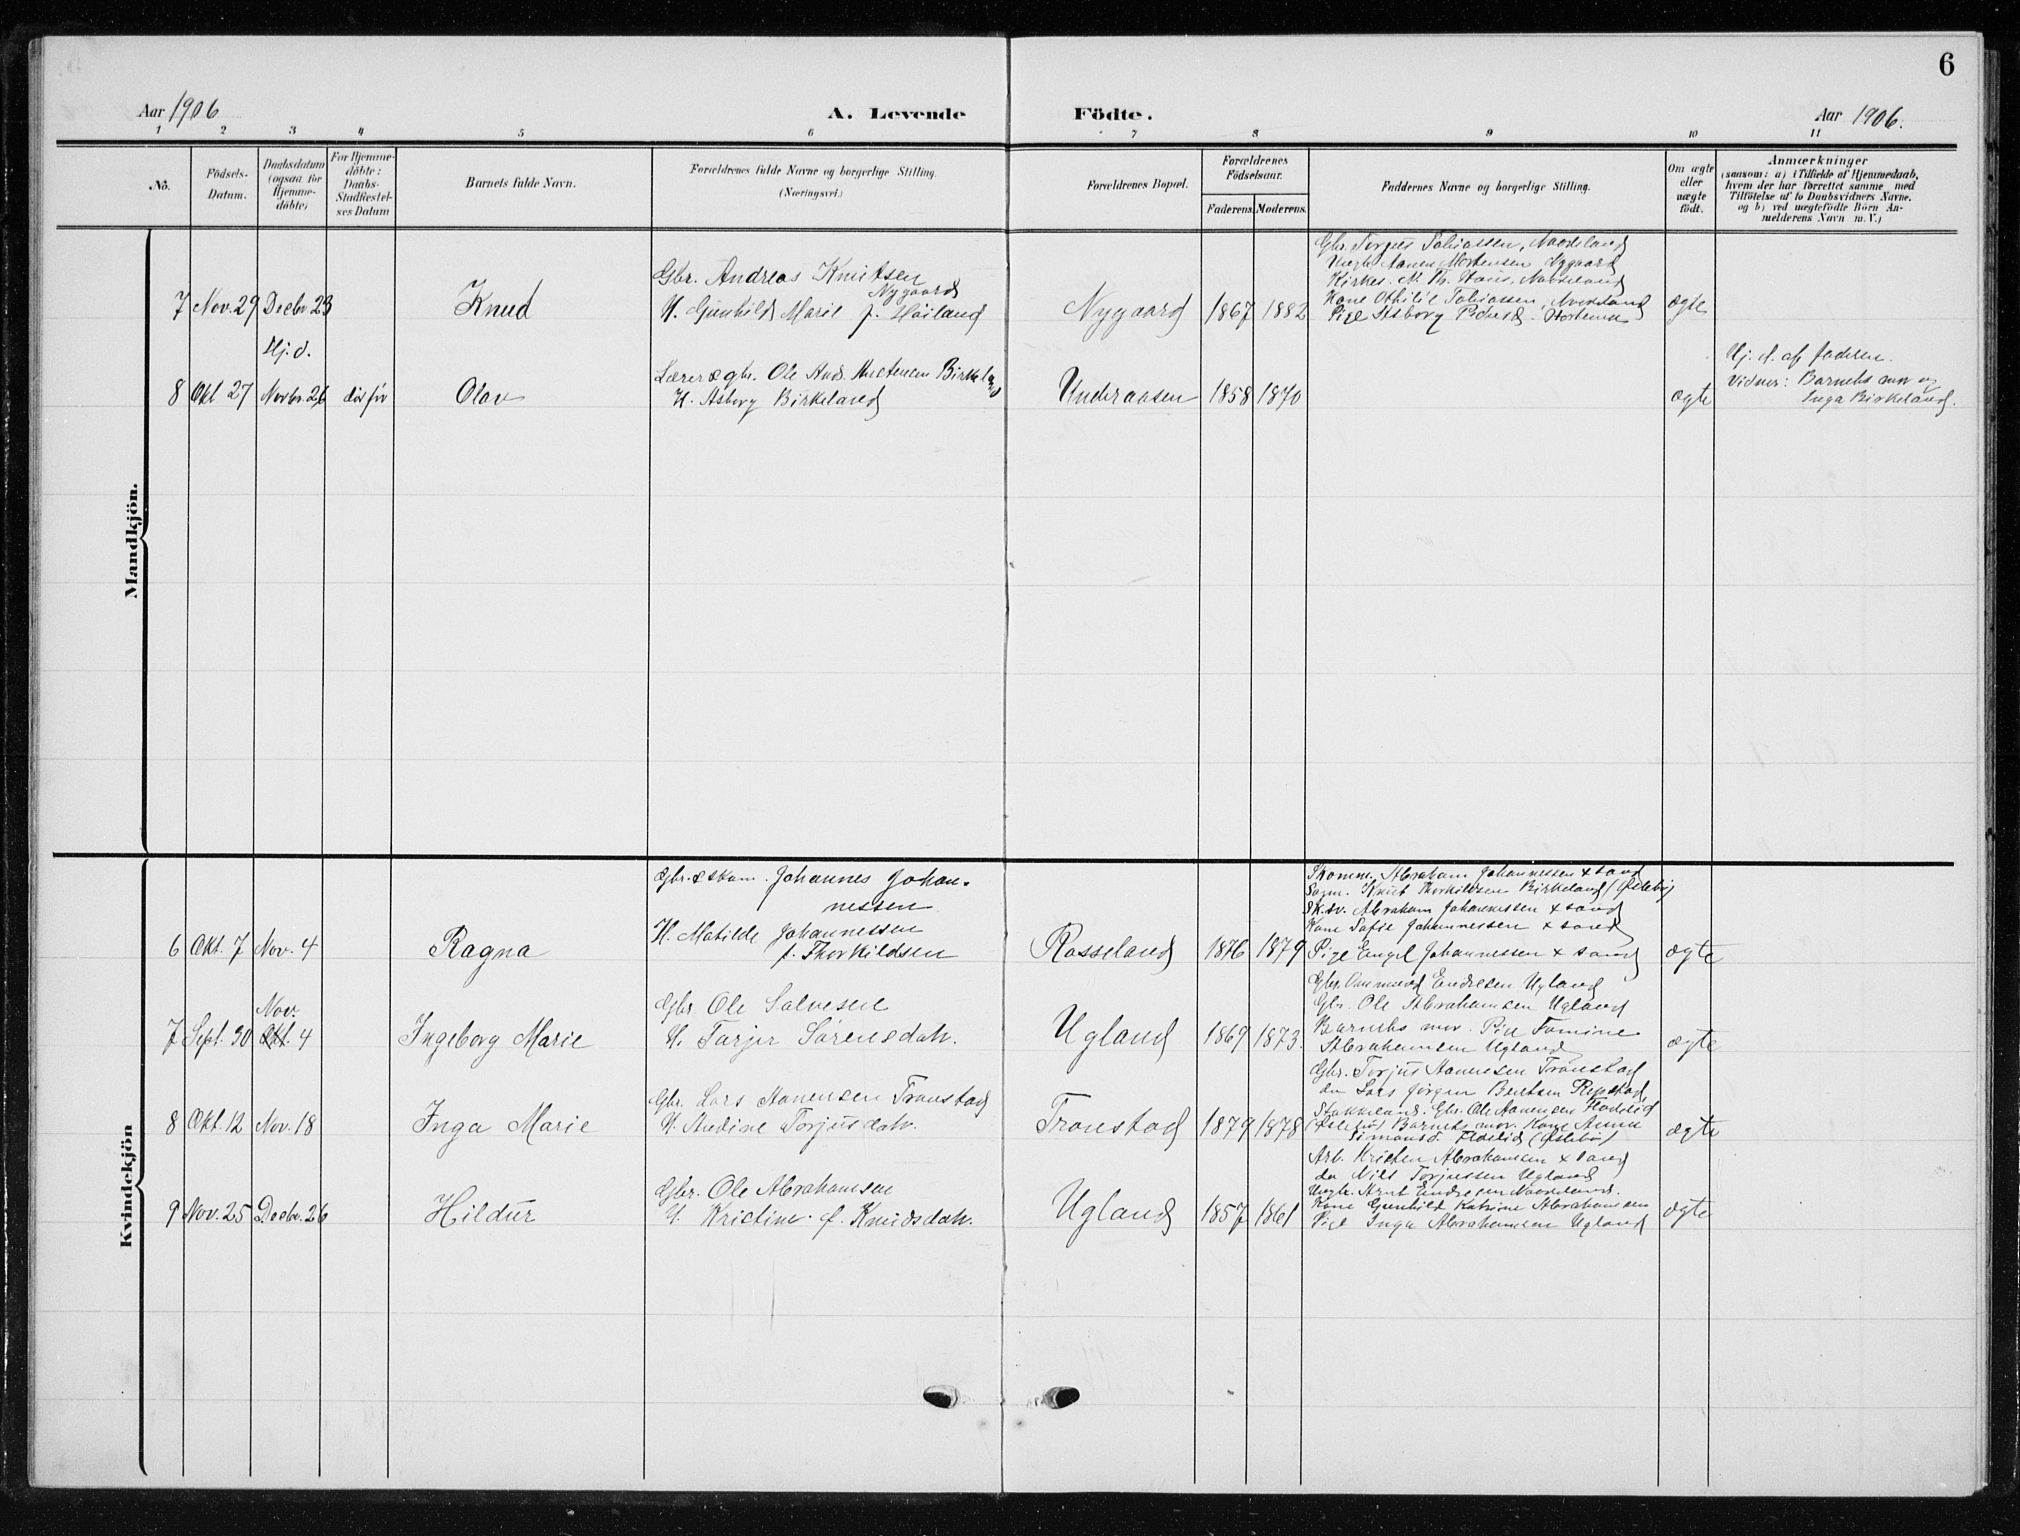 6
Aar 1906
A. Levende Födte.
Aar 1906.
1 2 3 4 5 6 7 8 9 10 11
No.
Födsels-
Datum.
Daabsdatum
(ogsaa for
Hjemme-
döbte)
For Hjemme-
döbte:
Daabs-
Stadfæstel-
ses Datum
Barnets fulde Navn.
Forældrenes fulde Navne og borgerlige Stilling.
(Næringsvei.)
Forældrenes Bopæl.
Forældrenes
Födselsaar.
Faderens.
Moderens.
Faddernes Navne og borgerlige Stilling.
Om ægte
eller
uægte
födt.
Anmærkninger
(saasom: a) i Tilfælde af Hjemmedaab,
hvem der har forrettet samme med
Tilföielse af to Daabsvidners Navne.
og b) ved uægtefödte Börn An-
melderens Navn m. V.)
Mandkjön.
7 Nov. 29 Decbr. 23
Knud
Gbr. Andreas Knutsen
Nygaard
H. Gunhild Marie f. Høiland
Nygaard 1867 1882
Gbr. Torjus Tobiassen, Nodeland
Ungk. Aanen Mortensen Nygaard
Kirkes. M. Th. Nodeland
Kone Othilie Tobiassen, Nodeland
Pige Asborg
ægte
Hj. d.
8 Okt 27 Novbr. 26 død før
Olav
Lærer & gbr. Ole And. Birkeland
H. Asborg Birkeland
Underaasen 1858 1870
ægte
Hj. d. af Faderen.
Vidner: Barnets mor og
Inga Birkeland.
Kvindekjön
6 Okt. 7 Nov. 4
Ragna
Gbr. & skom. Johannes Johan-
nessen
H. Matilde Johannessen
f. Thorkildsen
Rosseland 1876 1879
Skomm. Abraham Johannessen X sand
Knut Thorkildsen Birkeland (Øslebø)
Abraham Johannessen X sand
Kone Sofie Johannessen X sand
Pige Engel Johannessen X sand
ægte
7 Sept. 30 Nov.
Okt. 4
Ingeborg Marie
Gbr. Ole Salvesen
H. Tarjer Sørensdatr.
Ugland 1869 1873.
Gbr. Ommund Endresen Ugland
Gbr. Ole Abrahamsen Ugland
Barnets mor. Pige Tomine
Abrahamsen Ugland
ægte
8 Okt. 12 Nov. 18
Inga Marie
Gbr. Lars Aanensen Tronstad
H. Andine Torjusdatr.
Tronstad 1879 1878
Gbr. Torjus Aanensen Tronstad
do Lars Jørgen Bentsen Repstad,
Stokkeland. Gbr. Ole Aanensen
(Øslebø) Barnets mor. Kone Anna
Simonsd. (Øslebø)
ægte
9 Nov. 25 Decbr. 26
Hildur
Gbr. Ole Abrahamsen
H. Kristine f. Knudsdatr.
Ugland 1857 1861
Arb. Kristen Abrahamsen X sand
do Nils Torjussen Ugland
Ungk. Arnt Endresen Nodeland.
Kone Gunhild Katrine Abrahamsen
Pige Inga Abrahamsen Ugland
ægte